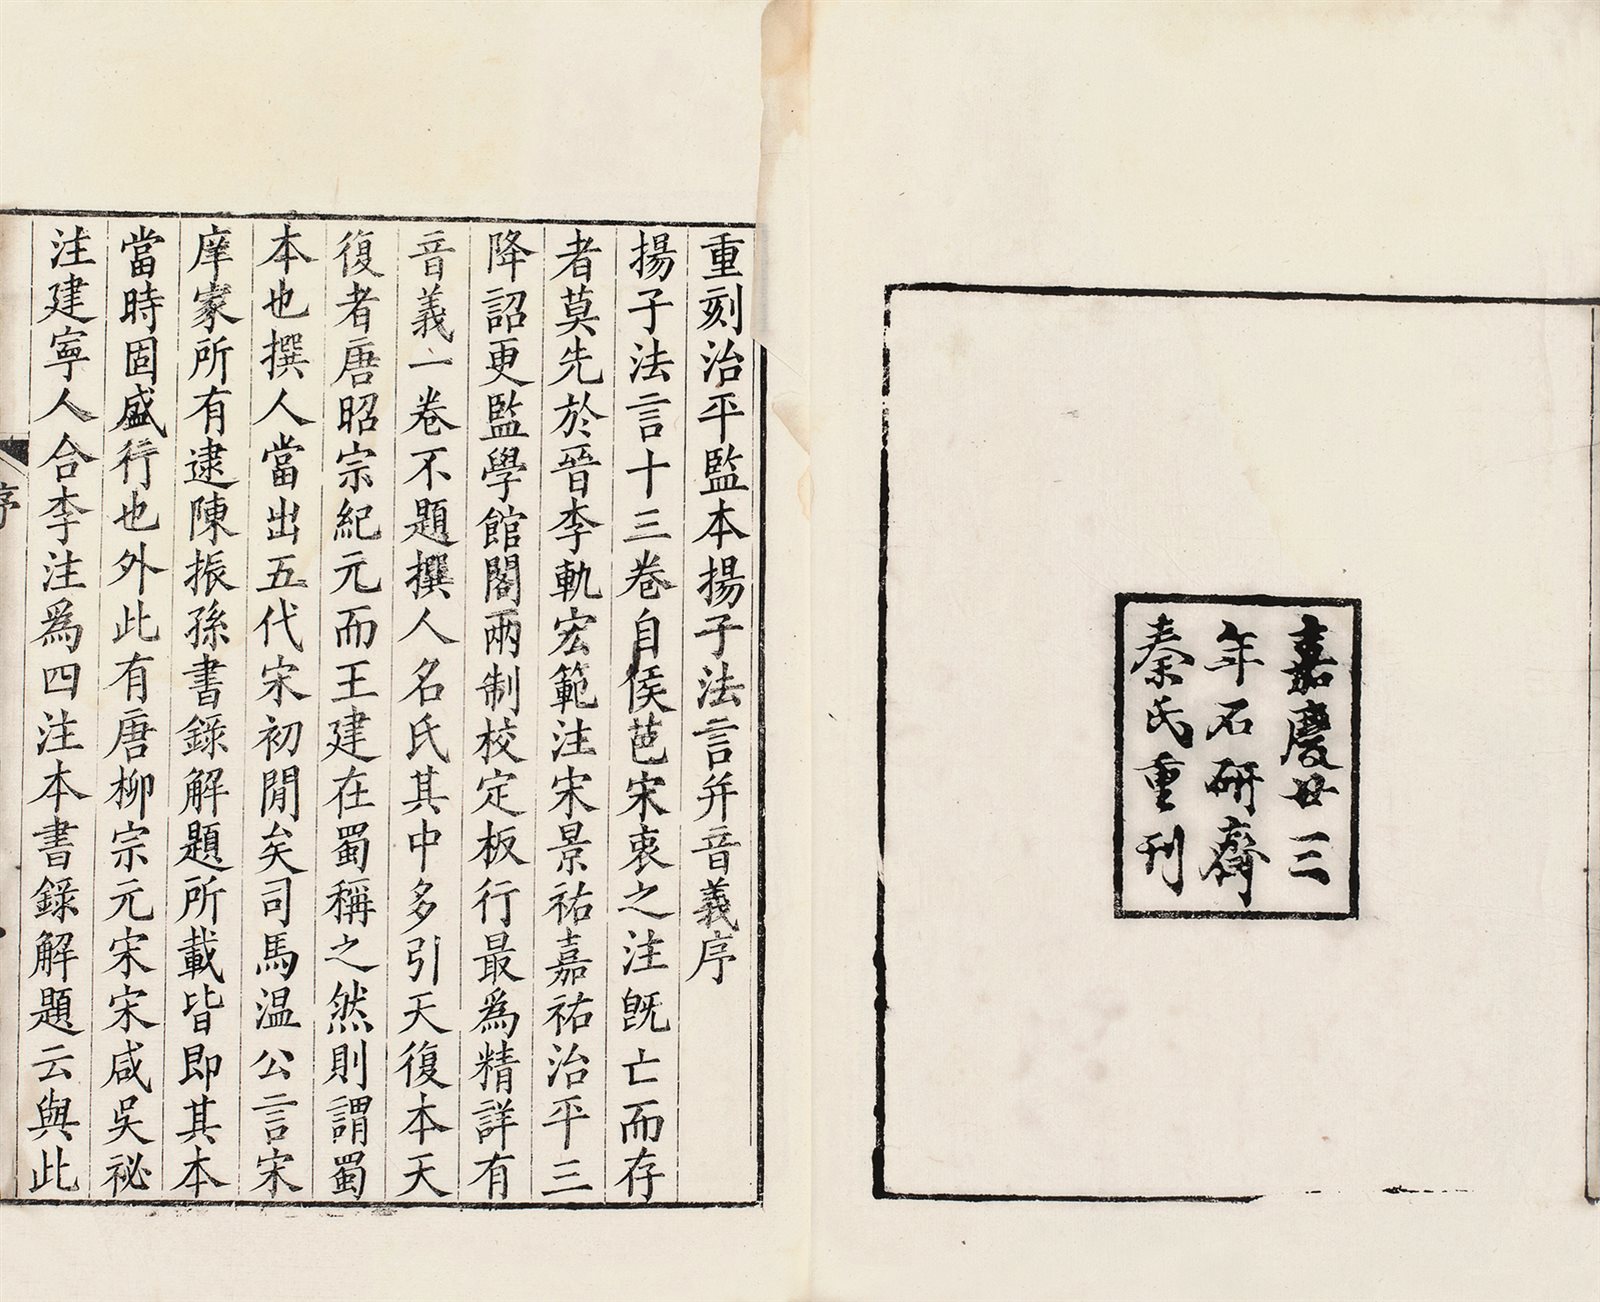 嘉慶廿三
年石研齋
秦氏重刊
重刻治平監本揚子法言并音義序
揚子法言十三卷自侯芭宋衷之注旣亡而存
者莫先於晉李軌宏範注宋景祐嘉祐治平三
降詔更監學館閣兩制校定板行最爲精詳有
音義一卷不題撰人名氏其中多引天復本天
復者唐昭宗紀元而王建在蜀稱之然則謂蜀
本也撰人當出五代宋初閒矣司馬温公言宋
庠家所有逮陳振孫書錄解題所載皆卽其本
當時固盛行也外此有唐柳宗元宋宋咸吳祕
注建寧人合李注爲四注本書錄解題云與此
序